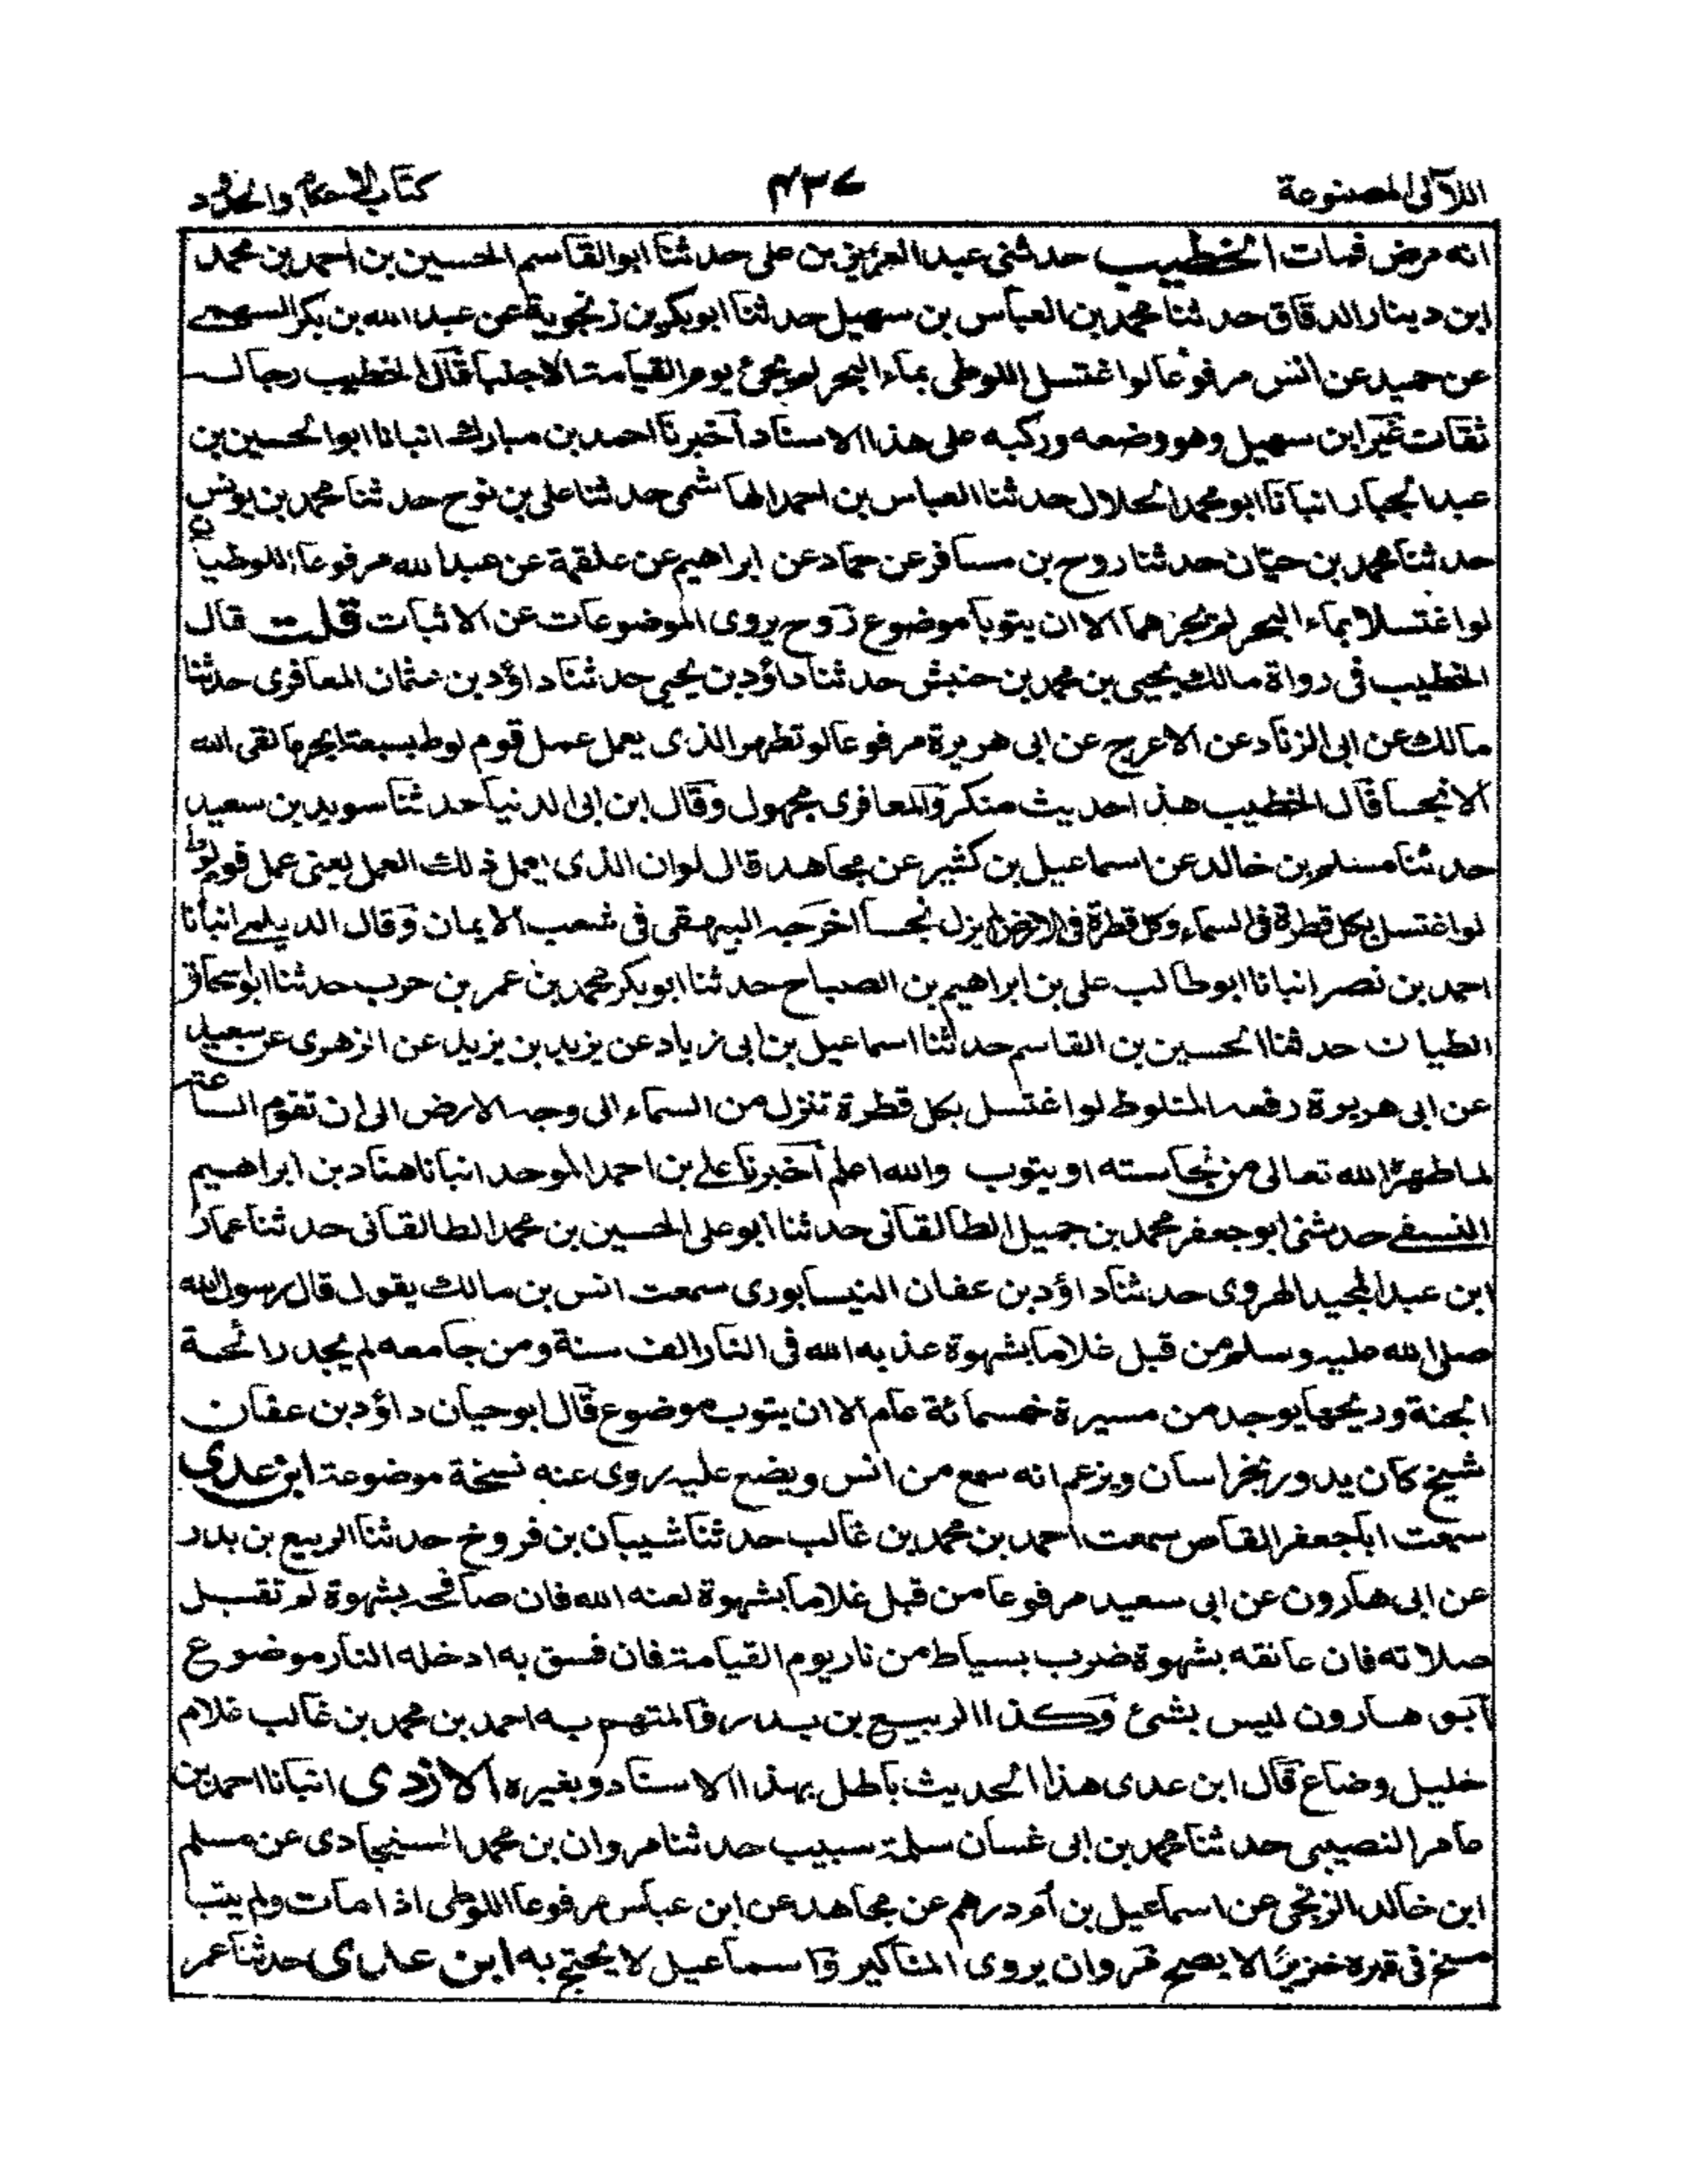 اللآلى المصنوعة
٤٣٧
كتاب الاحكام والحدود
انه مرض فمات الخطيب حدثنى عبد العزيز بن على حدثنا ابوالقاسم الحسين بن احمد بن محمد
ابن دينار الدقاق حدثنا محمد بن العباس بن سهيل حدثنا ابوبكر بن زنجوية عن عبد الله بن بكر السهمى
عن حميد عن انس مرفوعا لو اغتسل اللوطى بماء البحر لم يجئ يوم القيامة الا جنبا قال الخطيب رجاله
ثقات غير ابن سهيل وهو وضعه وركبه على هذا الاسناد اخبرنا احمد بن مبارك انبانا ابوالحسين بن
عبد الجبار انبانا ابومحمد الخلال حدثنا العباس بن احمد الهاشمى حدثنا على بن نوح حدثنا محمد بن يونس
حدثنا محمد بن حيان حدثنا روح بن مسافر عن حماد عن ابراهيم عن علقمة عن عبد الله مرفوعا اللوطيان
لو اغتسلا بماء البحر لم يجزهما الا ان يتوبا موضوع روح يروى الموضوعات عن الاثبات قلت قال
الخطيب فى رواة مالك يحيى بن محمد بن خنبش حدثنا داؤد بن يحيى حدثنا داؤد بن عثمان المعافرى حدثنا
مالك عن ابى الزناد عن الاعرج عن ابى هريرة مرفوعا لو تطهر الذى يعمل عمل قوم لوط بسبعة ابحر ما لقى الله
الا نجسا قال الخطيب هذا حديث منكر والمعافرى مجهول وقال ابن ابى الدنيا حدثنا سويد بن سعيد
حدثنا مسلم بن خالد عن اسماعيل بن كثير عن مجاهد قال لو ان الذى يعمل ذلك العمل يعنى عمل قوم لوط
لو اغتسل بكل قطرة فى السماء وكل قطرة فى الارض لم يزل نجسا اخرجه البيهقى فى شعب الايمان وقال الديلمى انبأنا
احمد بن نصر انبانا ابوطالب على بن ابراهيم بن الصباح حدثنا ابوبكر محمد بن عمر بن حرب حدثنا ابواسحاق
الطيان حدثنا الحسين بن القاسم حدثنا اسماعيل بن ابى زياد عن يزيد بن يزيد عن الزهرى عن سعيد
عن ابى هريرة رفعه المتلوط لو اغتسل بكل قطرة تنزل من السماء الى وجه الارض الى ان تقوم الساعة
لما طهره الله تعالى من نجاسته او يتوب والله اعلم اخبرنا على بن احمد الموحد انبانا هناد بن ابراهيم
النسفى حدثنى ابوجعفر محمد بن جميل الطالقانى حدثنا ابوعلى الحسين بن محمد الطالقانى حدثنا عمار
ابن عبد المجيد الهروى حدثنا داؤد بن عفان النيسابورى سمعت انس بن مالك يقول قال رسول الله
صلى الله عليه وسلم من قبل غلاما بشهوة عذبه الله فى النار الف سنة ومن جامعه لم يجد رائحة
الجنة وريحها يوجد من مسيرة خمسمائة عام الا ان يتوب موضوع قال ابوحيان داؤد بن عفان
شيخ كان يدور بخراسان ويزعم انه سمع من انس ويضع عليه روى عنه نسخة موضوعة ابن عدى
سمعت اباجعفر القاص سمعت احمد بن محمد بن غالب حدثنا شيبان بن فروخ حدثنا الربيع بن بدر
عن ابى هارون عن ابى سعيد مرفوعا من قبل غلاما بشهوة لعنه الله فان صافحه بشهوة لم تقبل
صلاته فان عانقه بشهوة ضرب بسياط من نار يوم القيامة فان فسق به ادخله النار موضوع
ابو هارون ليس بشئ وكذا الربيع بن بدر والمتهم به احمد بن محمد بن غالب غلام
خليل وضاع قال ابن عدى هذا الحديث باطل بهذا الاسناد وبغيره الازدى انبانا احمد بن
عامر النصيبى حدثنا محمد بن ابى غسان سلمة سبيب حدثنا مروان بن محمد السنجادى عن مسلم
ابن خالد الزنجى عن اسماعيل بن أم درهم عن مجاهد عن ابن عباس مرفوعا اللوطى اذا مات ولم يتب
مسخ فى قبره خنزيرا لا يصح مروان يروى المناكير واسماعيل لا يحتج به ابن عدى حدثنا عمر